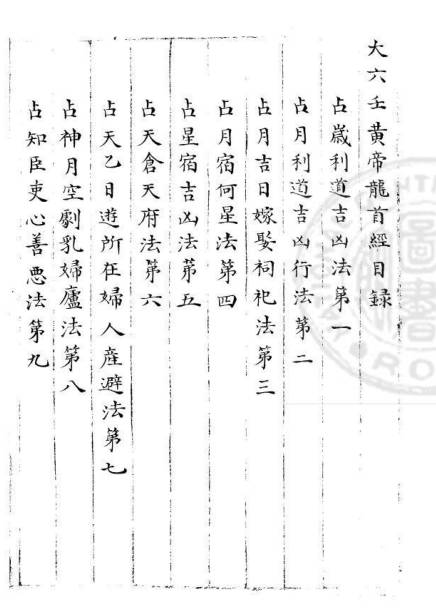 大六壬黄帝龍首經目録
占嵗利道吉凶法第一
占月利道吉凶行法第二
占月吉日嫁娶祠祀法第三
占月宿何星法第四
占星宿吉凶法第五
占天倉天府法第六
占天乙日遊所在婦人産避法第七
占神月空劇乳婦廬法第八
占知臣吏心善悪法第九